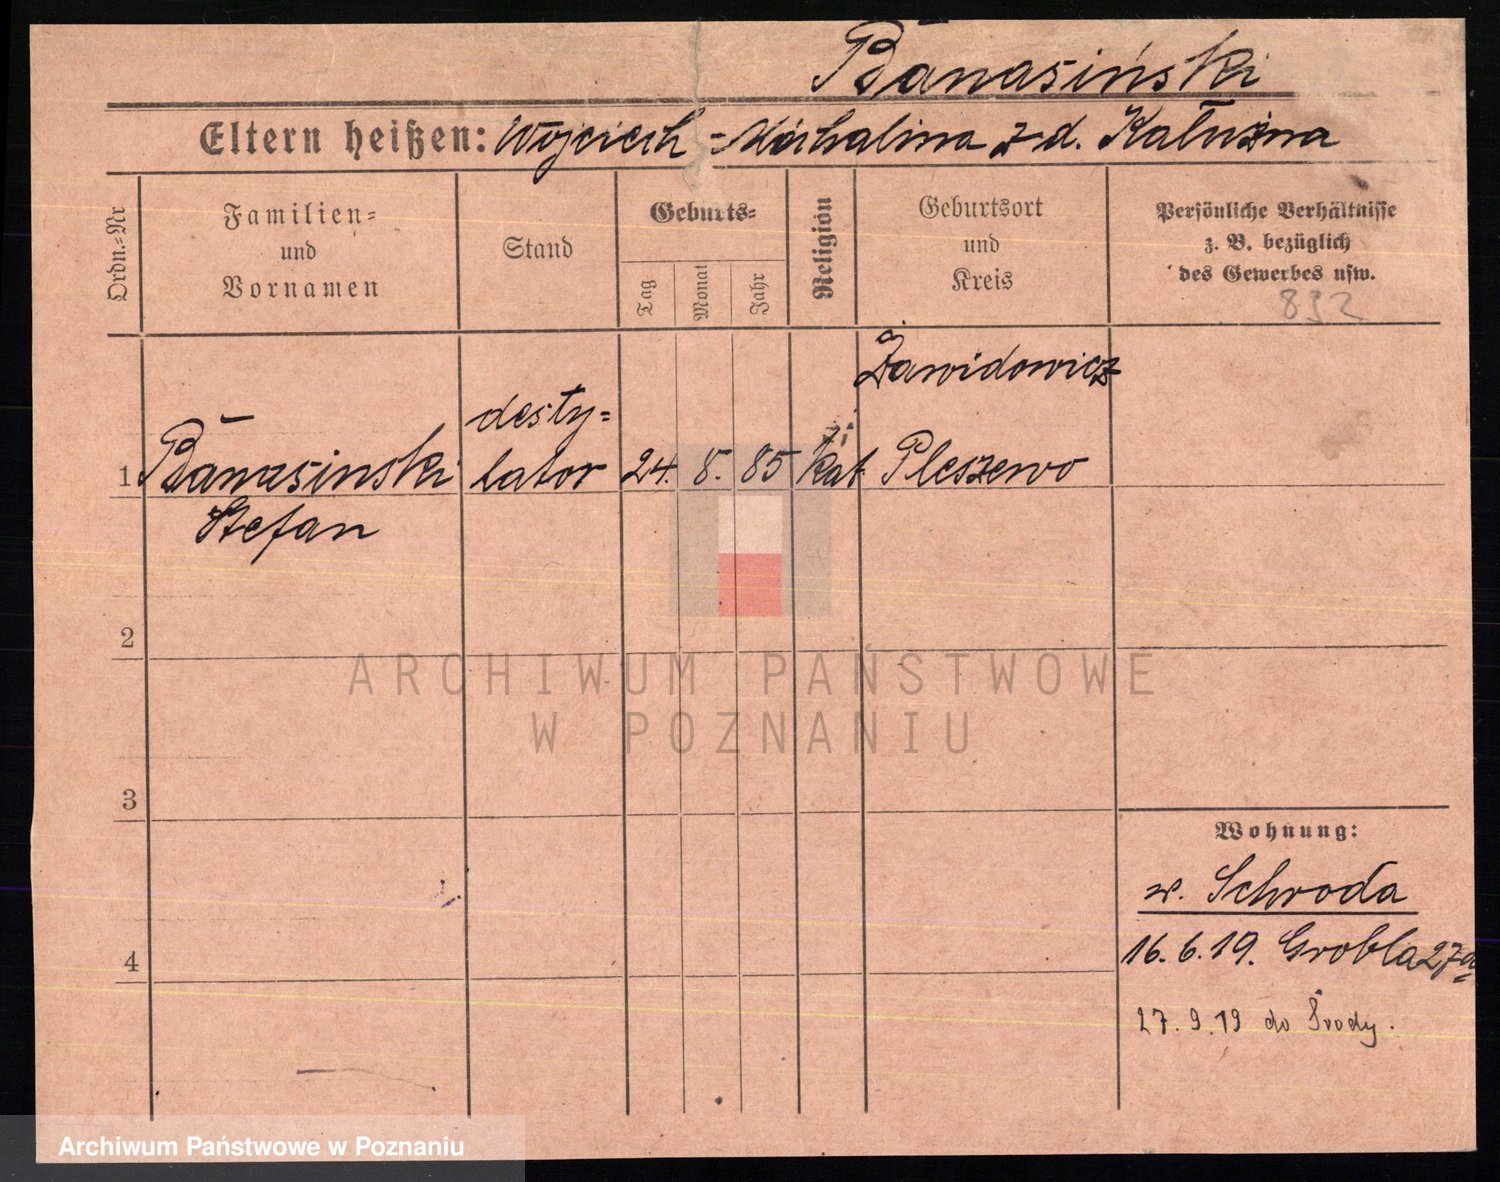 Banasiński
Eltern heißen: Wojciech = Michalina z d. Kałużna
Ordn.=Nr
Familien=
und
Vornamen
Stand
Geburts=
Tag
Monat
Jahr
Religion
Geburtsort
und
Kreis
Persönliche Verhältnisse
z. B. bezüglich
des Gewerbes usw.
832
Zawidowicz
desty=
1 Banasinski lator 24. 8. 85 kat. Pleszewo
Stefan
2
ARCHIWUM PAŃSTWOWE
W POZNANIU
3
Wohnung:
w. Schroda
16.6.19. Grobla 27a
4
27.9.19 do Środy.
Archiwum Państwowe w Poznaniu